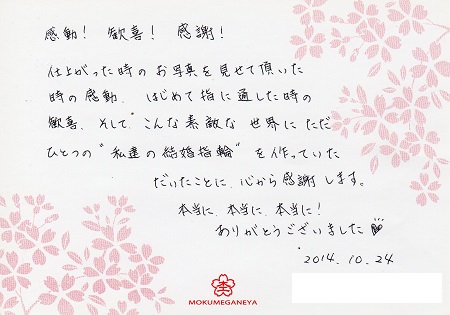 感動! 歓喜! 感謝!
仕上がった時の お写真を見せて頂いた
時の感動、はじめて指に通した時の
歓喜、そして こんな素敵な 世界に ただ
ひとつの"私達の結婚指輪"を作っていた
だいたことに、心から感謝します。
本当に、本当に、本当に!
ありがとうございました
2014.10.24
MOKUMEGANEYA